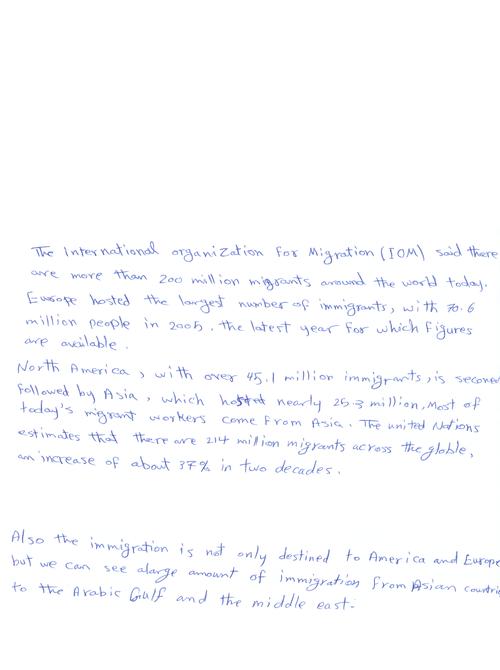 The International organiZation for Migration (IOM) said there
are more than 200 million migrants around the world today.
Europe hosted the largest number of immigrants, with 70.6
million people in 2005. the latest year for which figures
are available.
North America, with over 45.1 million immigrants, is second
followed by Asia, which hosted nearly 25.3 million, Most of
today's migrant workers come from Asia. The united Nations
estimates that there are 214 million migrants across the globle,
an increase of about 37% in two decades.
Also the immigration is not only destined to America and Europe
but we can see alarge amount of immigration from Asian countri
to the Arabic Gulf and the middle east.